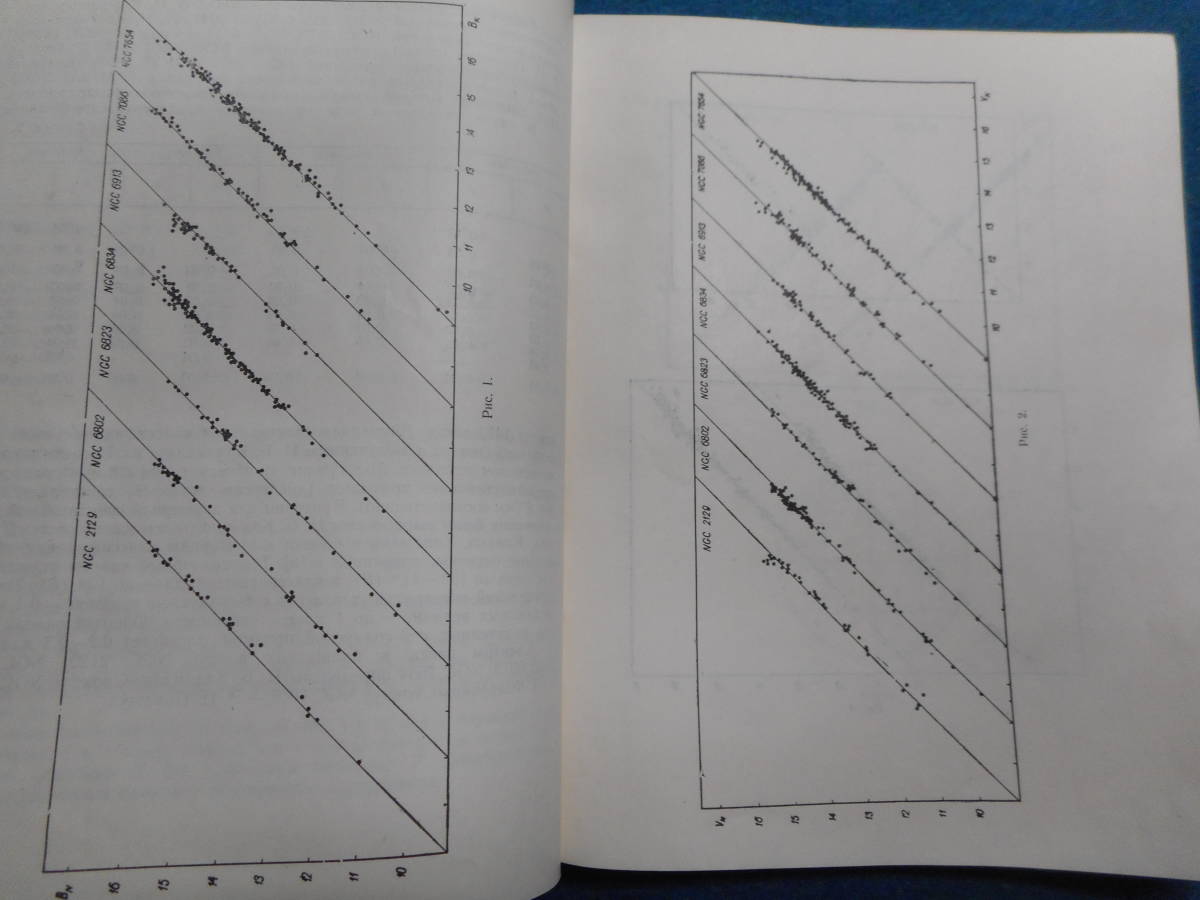 NGC 7654
NGC 7086
NGC 6913
NGC 6834
NGC 6823
NGC 6802
NGC 2129
16
15
14
13
12
11
10
16
15
14
13
12
11
10
Рис. 1.
NGC 7654
NGC 7086
NGC 6913
NGC 6834
NGC 6823
NGC 6802
NGC 2129
16
15
14
13
12
11
10
16
15
14
13
12
11
10
Рис. 2.